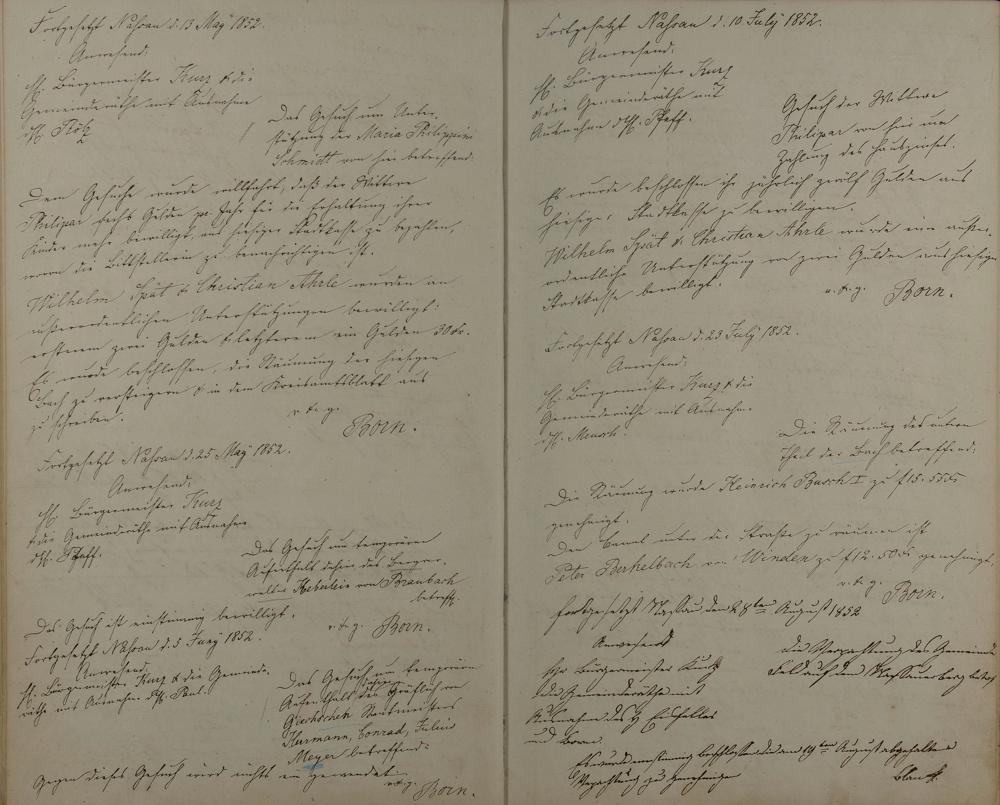 Fortgesetzt Nassau d. 13 May 1852.
Anwesend:
H. Bürgermeister Kurz & die
Gemeinderäthe mit Ausnahme
d. H. Stötz
Das Gesuch um Unter-
stützung der Maria Philippine
Schmidt von hier betreffend.
Dem Gesuche wurde willfahrt, daß der Wittwe
Philipar sechs Gulden pr. Jahr für die Erhaltung ihrer
Kinder mehr bewilligt, aus hiesiger Stadtkasse zu bezahlen,
wovon die Bittstellerin zu benachrichtigen ist.
Wilhelm Spät & Christian Ahrle wurden an
außerordentlichen Unterstützungen bewilligt:
ersterem zwei Gulden & letzterem ein Gulden 30 Kr.
Es wurde beschlossen, die Räumung der hiesigen
Bach zu versteigern & in dem Kreisamtsblatt aus
zu schreiben.
v. & g.
Born.
Fortgesetzt Nassau d. 25 May 1852.
Anwesend:
H. Bürgermeister Kurz
& die Gemeinderäthe mit Ausnahme
d. H. Pfaff.
Das Gesuch um temporären
Aufenthalt dahier des Berg-
Heberlein von Braubach
betreff.
Das Gesuch ist einstimmig bewilligt.
v. & g. Born.
Fortgesetzt Nassau d. 5 Juny 1852.
Anwesend:
H. Bürgermeister Kurz & die Gemeinde-
räthe mit Ausnahme d. H. Paul.
Das Gesuch um temporären
Aufenthalt des Gräflich von
Rentmeisters
Hermann, Conrad, Julius
Meyer betreffend.
Gegen dieses Gesuch wird nichts eingewendet.
v. & g. Born.
Fortgesetzt Nassau d. 10 July 1852.
Anwesend:
H. Bürgermeister Kurz
& die Gemeinderäthe mit
Ausnahme d. H. Pfaff.
Gesuch der Wittwe
Philipar von hier um
Zahlung des Hauszinses.
Es wurde beschlossen ihr jährlich zwölf Gulden aus
hiesiger Stadtkasse zu bewilligen.
Wilhelm Spät & Christian Ahrle wurde eine außer-
ordentliche Unterstützung von zwei Gulden aus hiesiger
Stadtkasse bewilligt.
v. & g. Born.
Fortgesetzt Nassau d. 23 July 1852.
Anwesend:
H. Bürgermeister Kurz & die
Gemeinderäthe mit Ausnahme
d. H. Mensch.
Die Räumung des untern
Theil der Bach betreffend.
Die Räumung wurde Heinrich Busch I zu f 15. 55 Kr
genehmigt.
Den Canal unter der Straße zu räumen ist
Peter Berkelbach von Winden zu f 12. 50 Kr genehmigt.
v. & g. Born.
Fortgesetzt Nassau den 28ten August 1852
Anwesend
Hr Bürgermeister Kurz
die Gemeinderäthe mit
Ausnahme des H
und Born.
die Verpachtung des Gemeinde
Feld auf dem betref
Es wurde einstimmig beschlossen die am 19ten August abgehaltene
Verpachtung zu Genehmigen